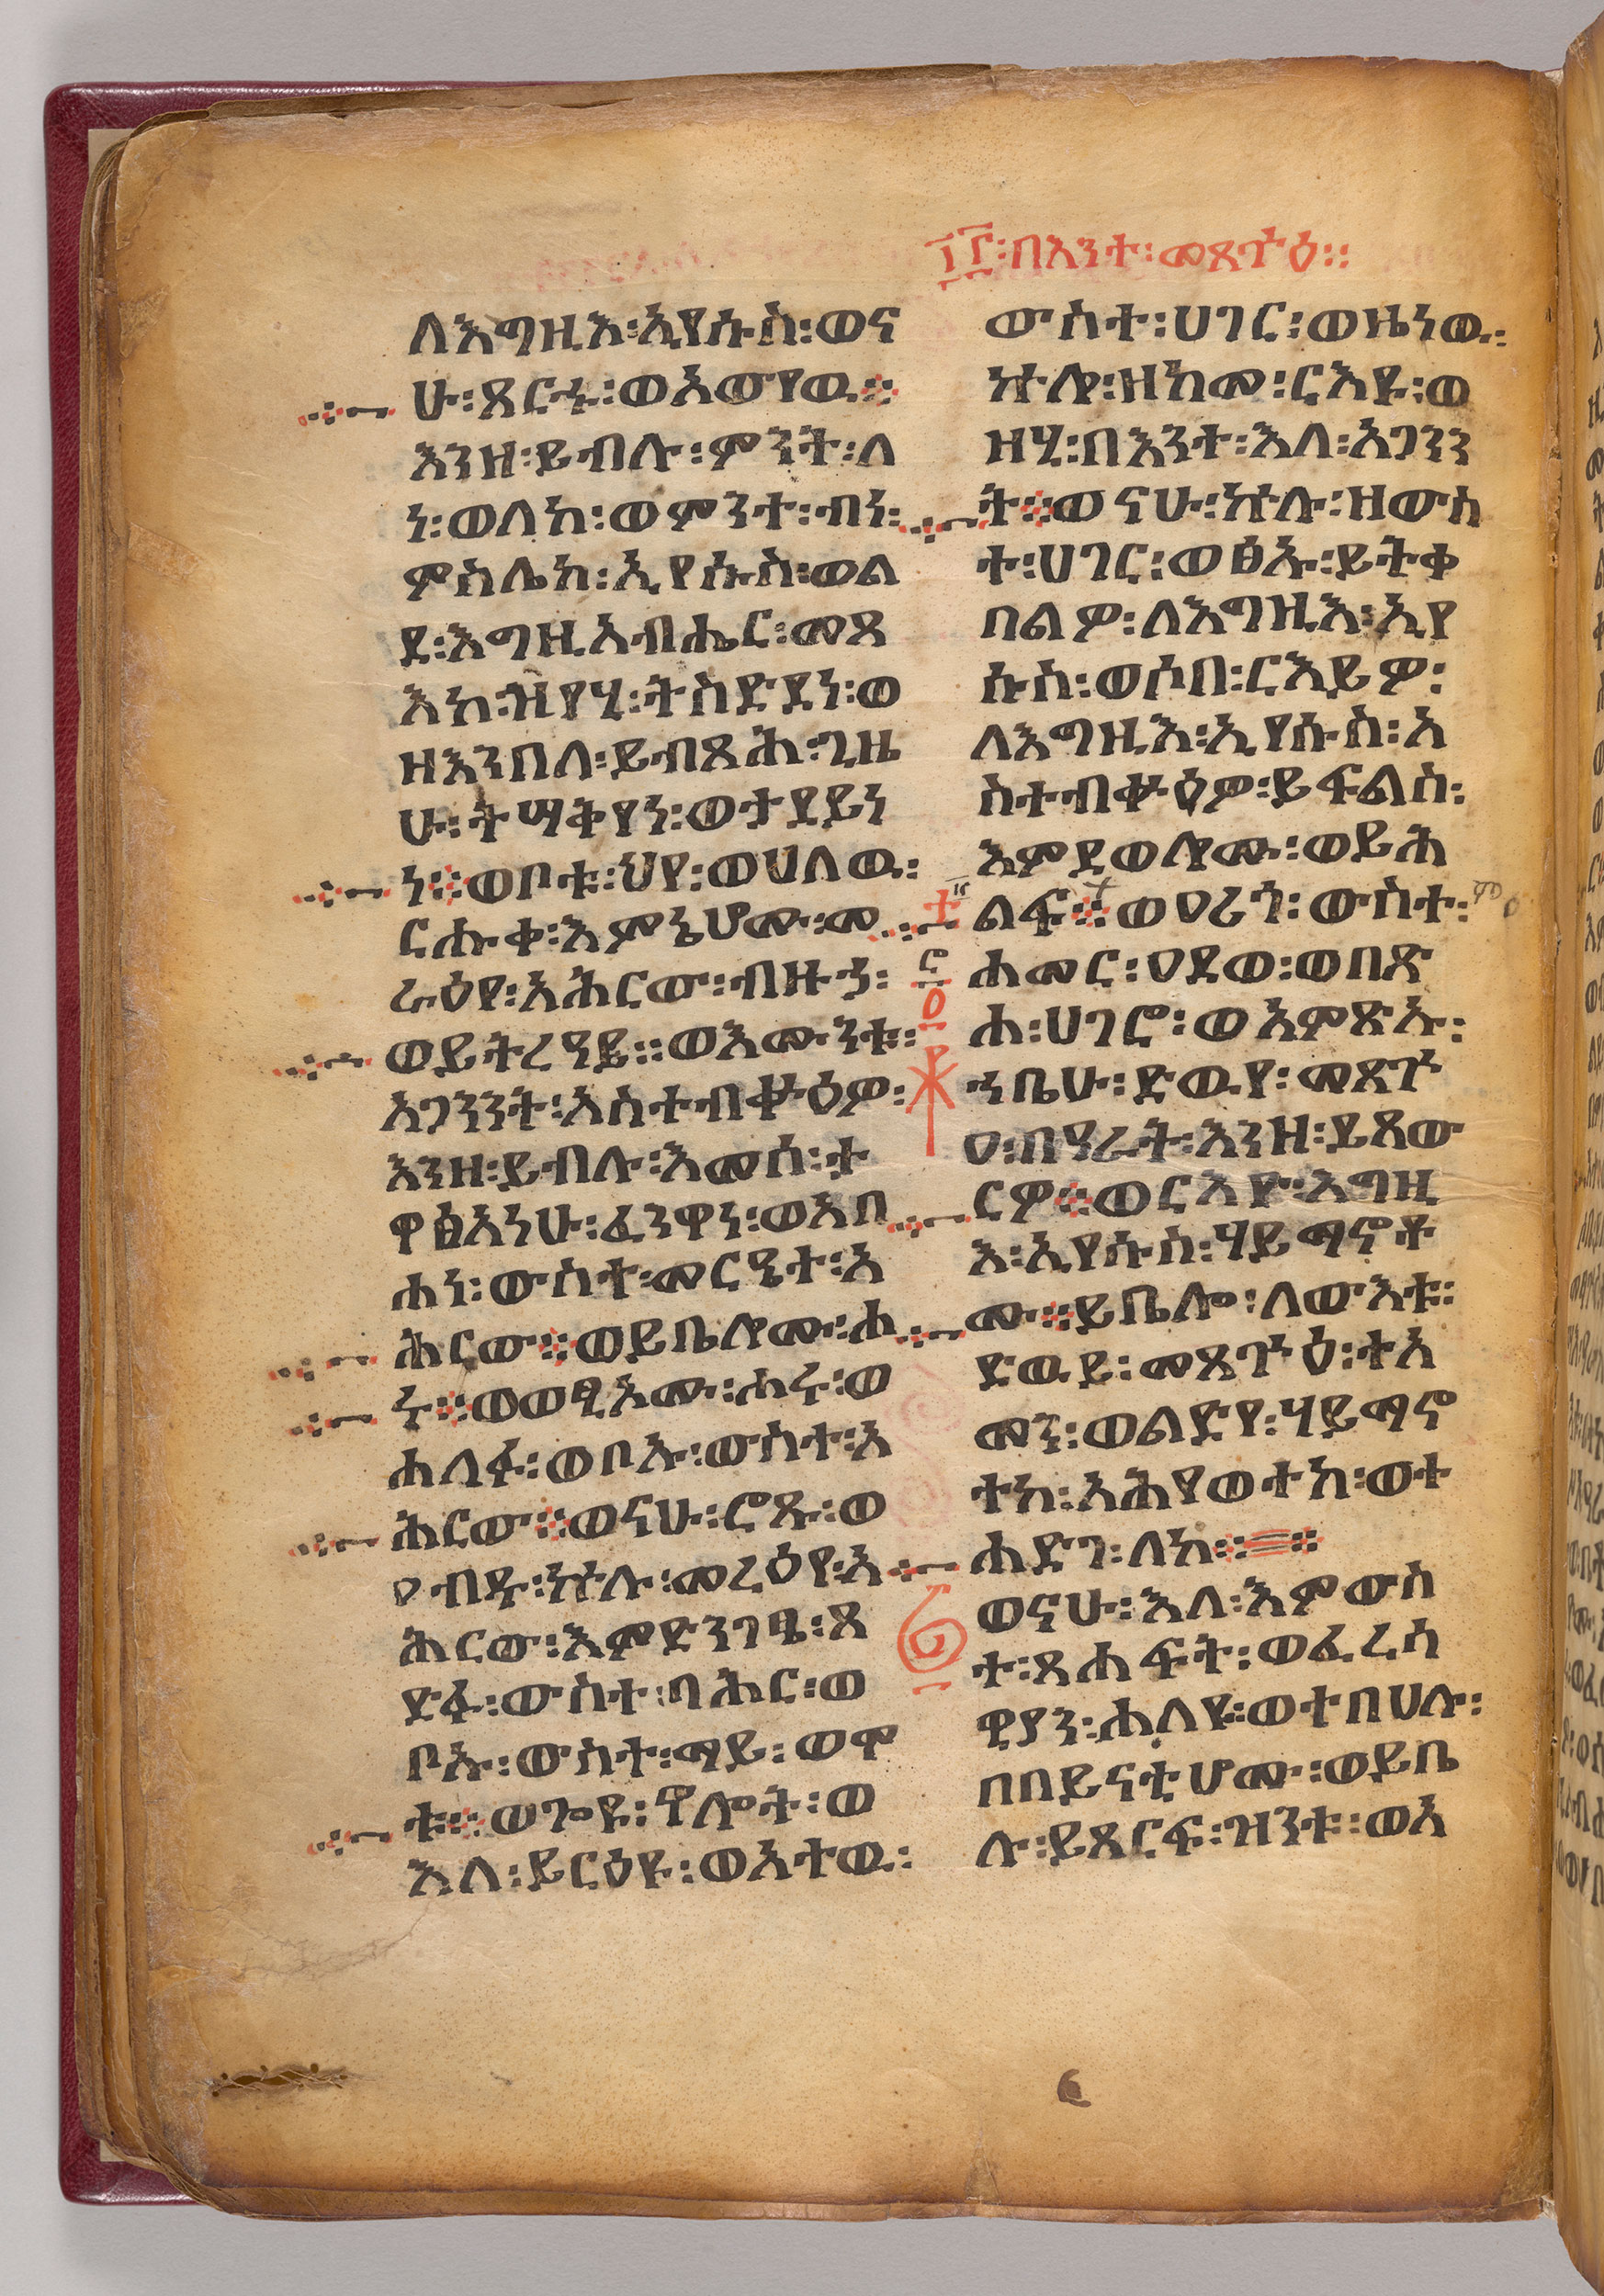 ፲፫፡በእንተ፡መጻጕዕ፡፡
ለእግዚእ፡ኢየሱስ፡ወና
ሁ፡ጸርሑ፡ወአውየዉ፨
እንዘ፡ይብሉ፡ምንት፡ለ
ነ፡ወለከ፡ወምንተ፡ብነ፡
ምስሌከ፡ኢየሱስ፡ወል
ደ፡እግዚአብሔር፡መጻ
እከ፡ዝየሂ፡ትስድደነ፡ወ
ዘእንበለ፡ይብጻሕ፡ጊዜ
ሁ፡ትሣቅየነ፡ወታደይን
ነ፨ወቦቱ፡ህየ፡ወሀለዉ፡
ርሑቀ፡እምኔሆሙ፡መ
ራዕየ፡አሕርው፡ብዙኃ፡
ወይትረዓይ፡፡ወእሙንቱ፡
አጋንንት፡አስተብቍዕዎ፡
እንዘ፡ይብሉ፡እመሰ፡ታ
ዋፅአነሁ፡ፈንዋነ፡ወአብ
ሐነ፡ውስተ፡መርዔተ፡አ
ሕርው፨ወይቤሎሙ፡ሐ
ሩ፨ወወፂኦሙ፡ሐሩ፡ወ
ሐለፉ፡ወቦኡ፡ውስተ፡አ
ሕርው፨ወናሁ፡ሮጹ፡ወ
ዐብዱ፡ኵሉ፡መረዕየ፡አ
ሕርው፡እምድንገፄ፡ጸ
ድፉ፡ውስተ፡ባሕር፡ወ
ቦኡ፡ውስተ፡ማይ፡ወሞ
ቱ፨ወጐዩ፡ኖሎት፡ወ
እለ፡ይርዕዩ፡ወአተዉ፡
ውስተ፡ሀገር፡ወዜነዉ፡
ኵሎ፡ዘከመ፡ርእዩ፡ወ
ዘሂ፡በእንተ፡እለ፡አጋንን
ት፨ወናሁ፡ኵሉ፡ዘውስ
ተ፡ሀገር፡ወፅኡ፡ይትቀ
በልዎ፡ለእግዚእ፡ኢየ
ሱስ፡ወሶበ፡ርእይዎ፡
ለእግዚእ፡ኢየሱስ፡አ
ስተብቍዕዎ፡ይፍልስ፡
እምደወሎሙ፡ወይሕ
ልፍ፨ወዐሪጎ፡ውስተ፡
ሐመር፡ዐደወ፡ወበጽ
ሐ፡ሀገሮ፡ወአምጽኡ፡
ኀቤሁ፡ድዉየ፡መጻጕ
ዐ፡በዓራት፡እንዘ፡ይጸው
ርዎ፨ወርእዮ፡እግዚ
እ፡ኢየሱስ፡ሃይማኖቶ
ሙ፨ይቤሎ፡ለውእቱ፡
ድዉይ፡መጻጕዕ፡ተአ
መን፡ወልድየ፡ሃይማኖ
ተከ፡አሕየወተከ፡ወተ
ሐድገ፡ለከ፨
ወናሁ፡እለ፡እምውስ
ተ፡ጸሐፍት፡ወፈረሳ
ዊያን፡ሐለዩ፡ወተበሀሉ፡
በበይናቲሆሙ፡ወይቤ
ሉ፡ይጸርፍ፡ዝንቱ፡፡ወአ